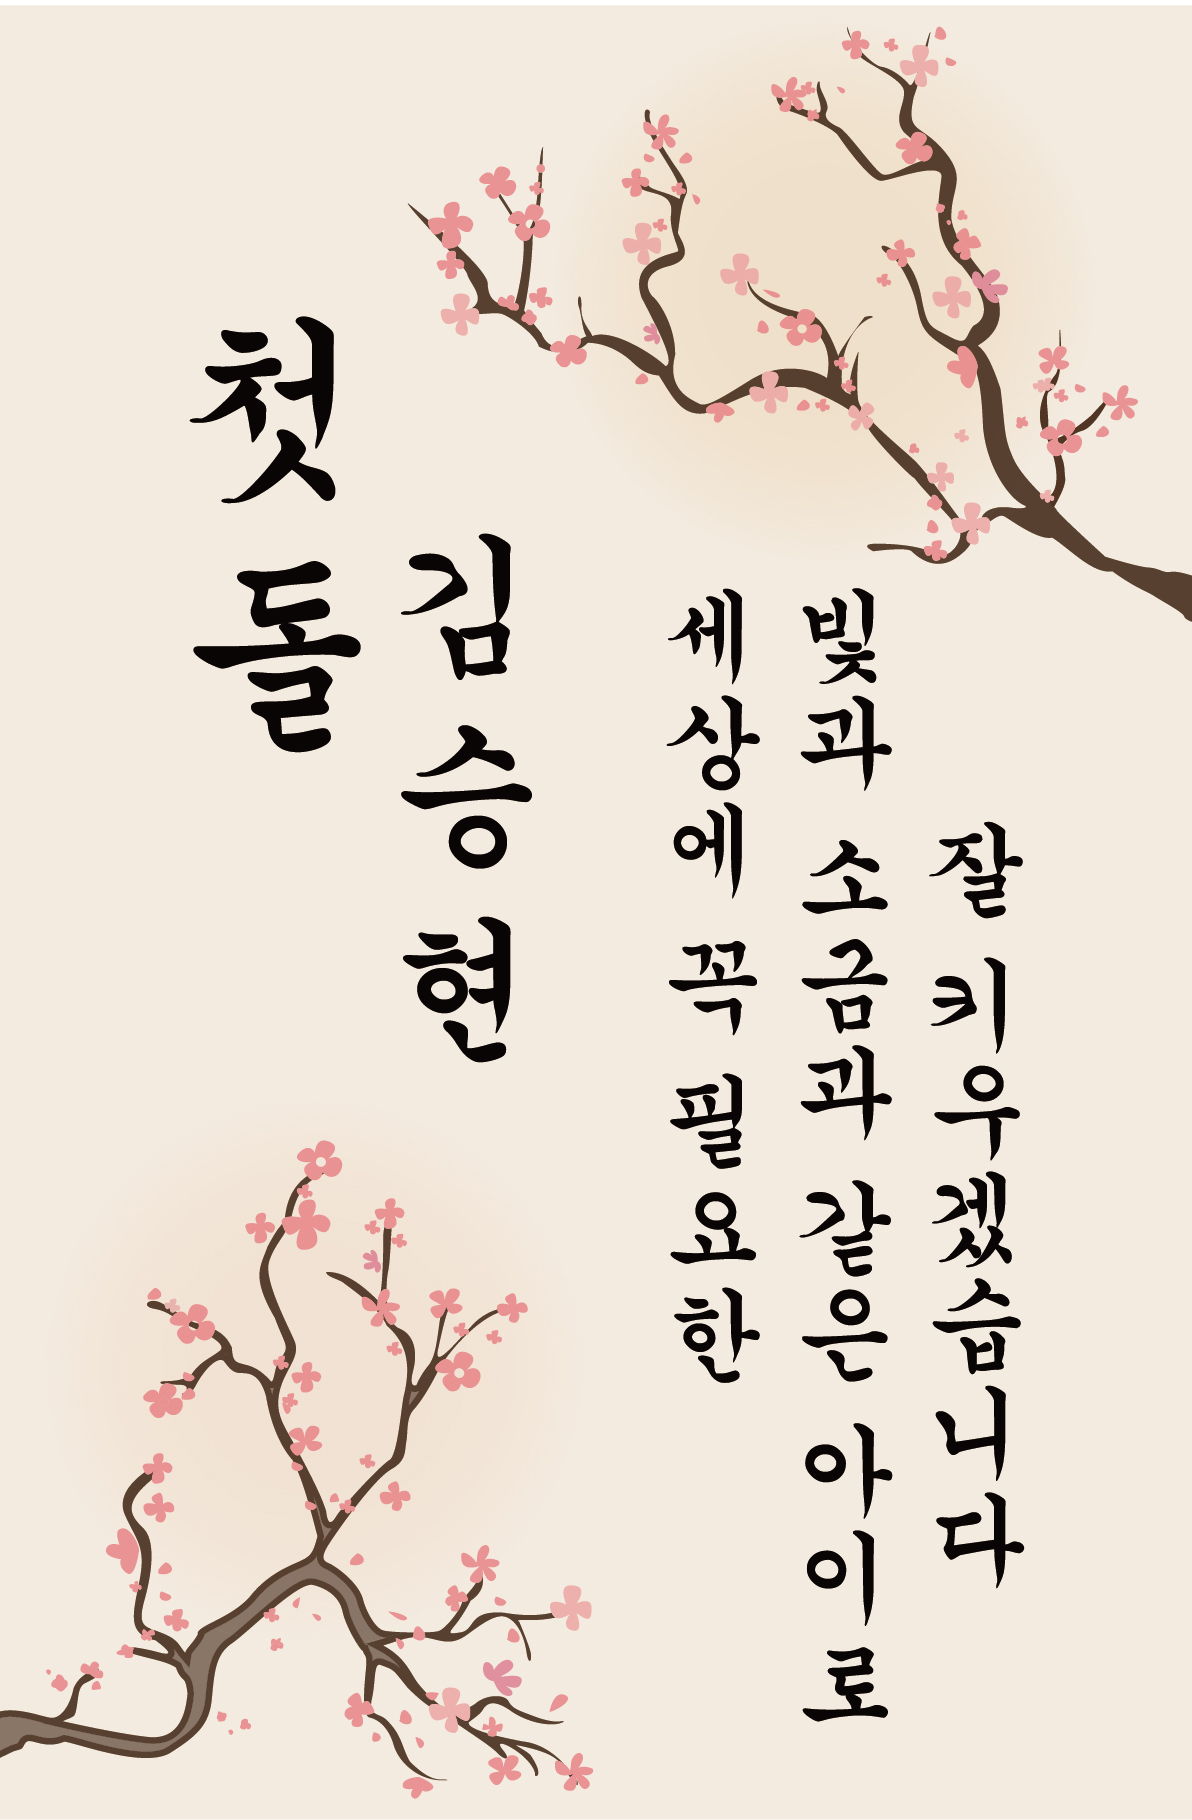 첫돌
김승현
세상에 꼭 필요한
빛과 소금과 같은 아이로
잘 키우겠습니다